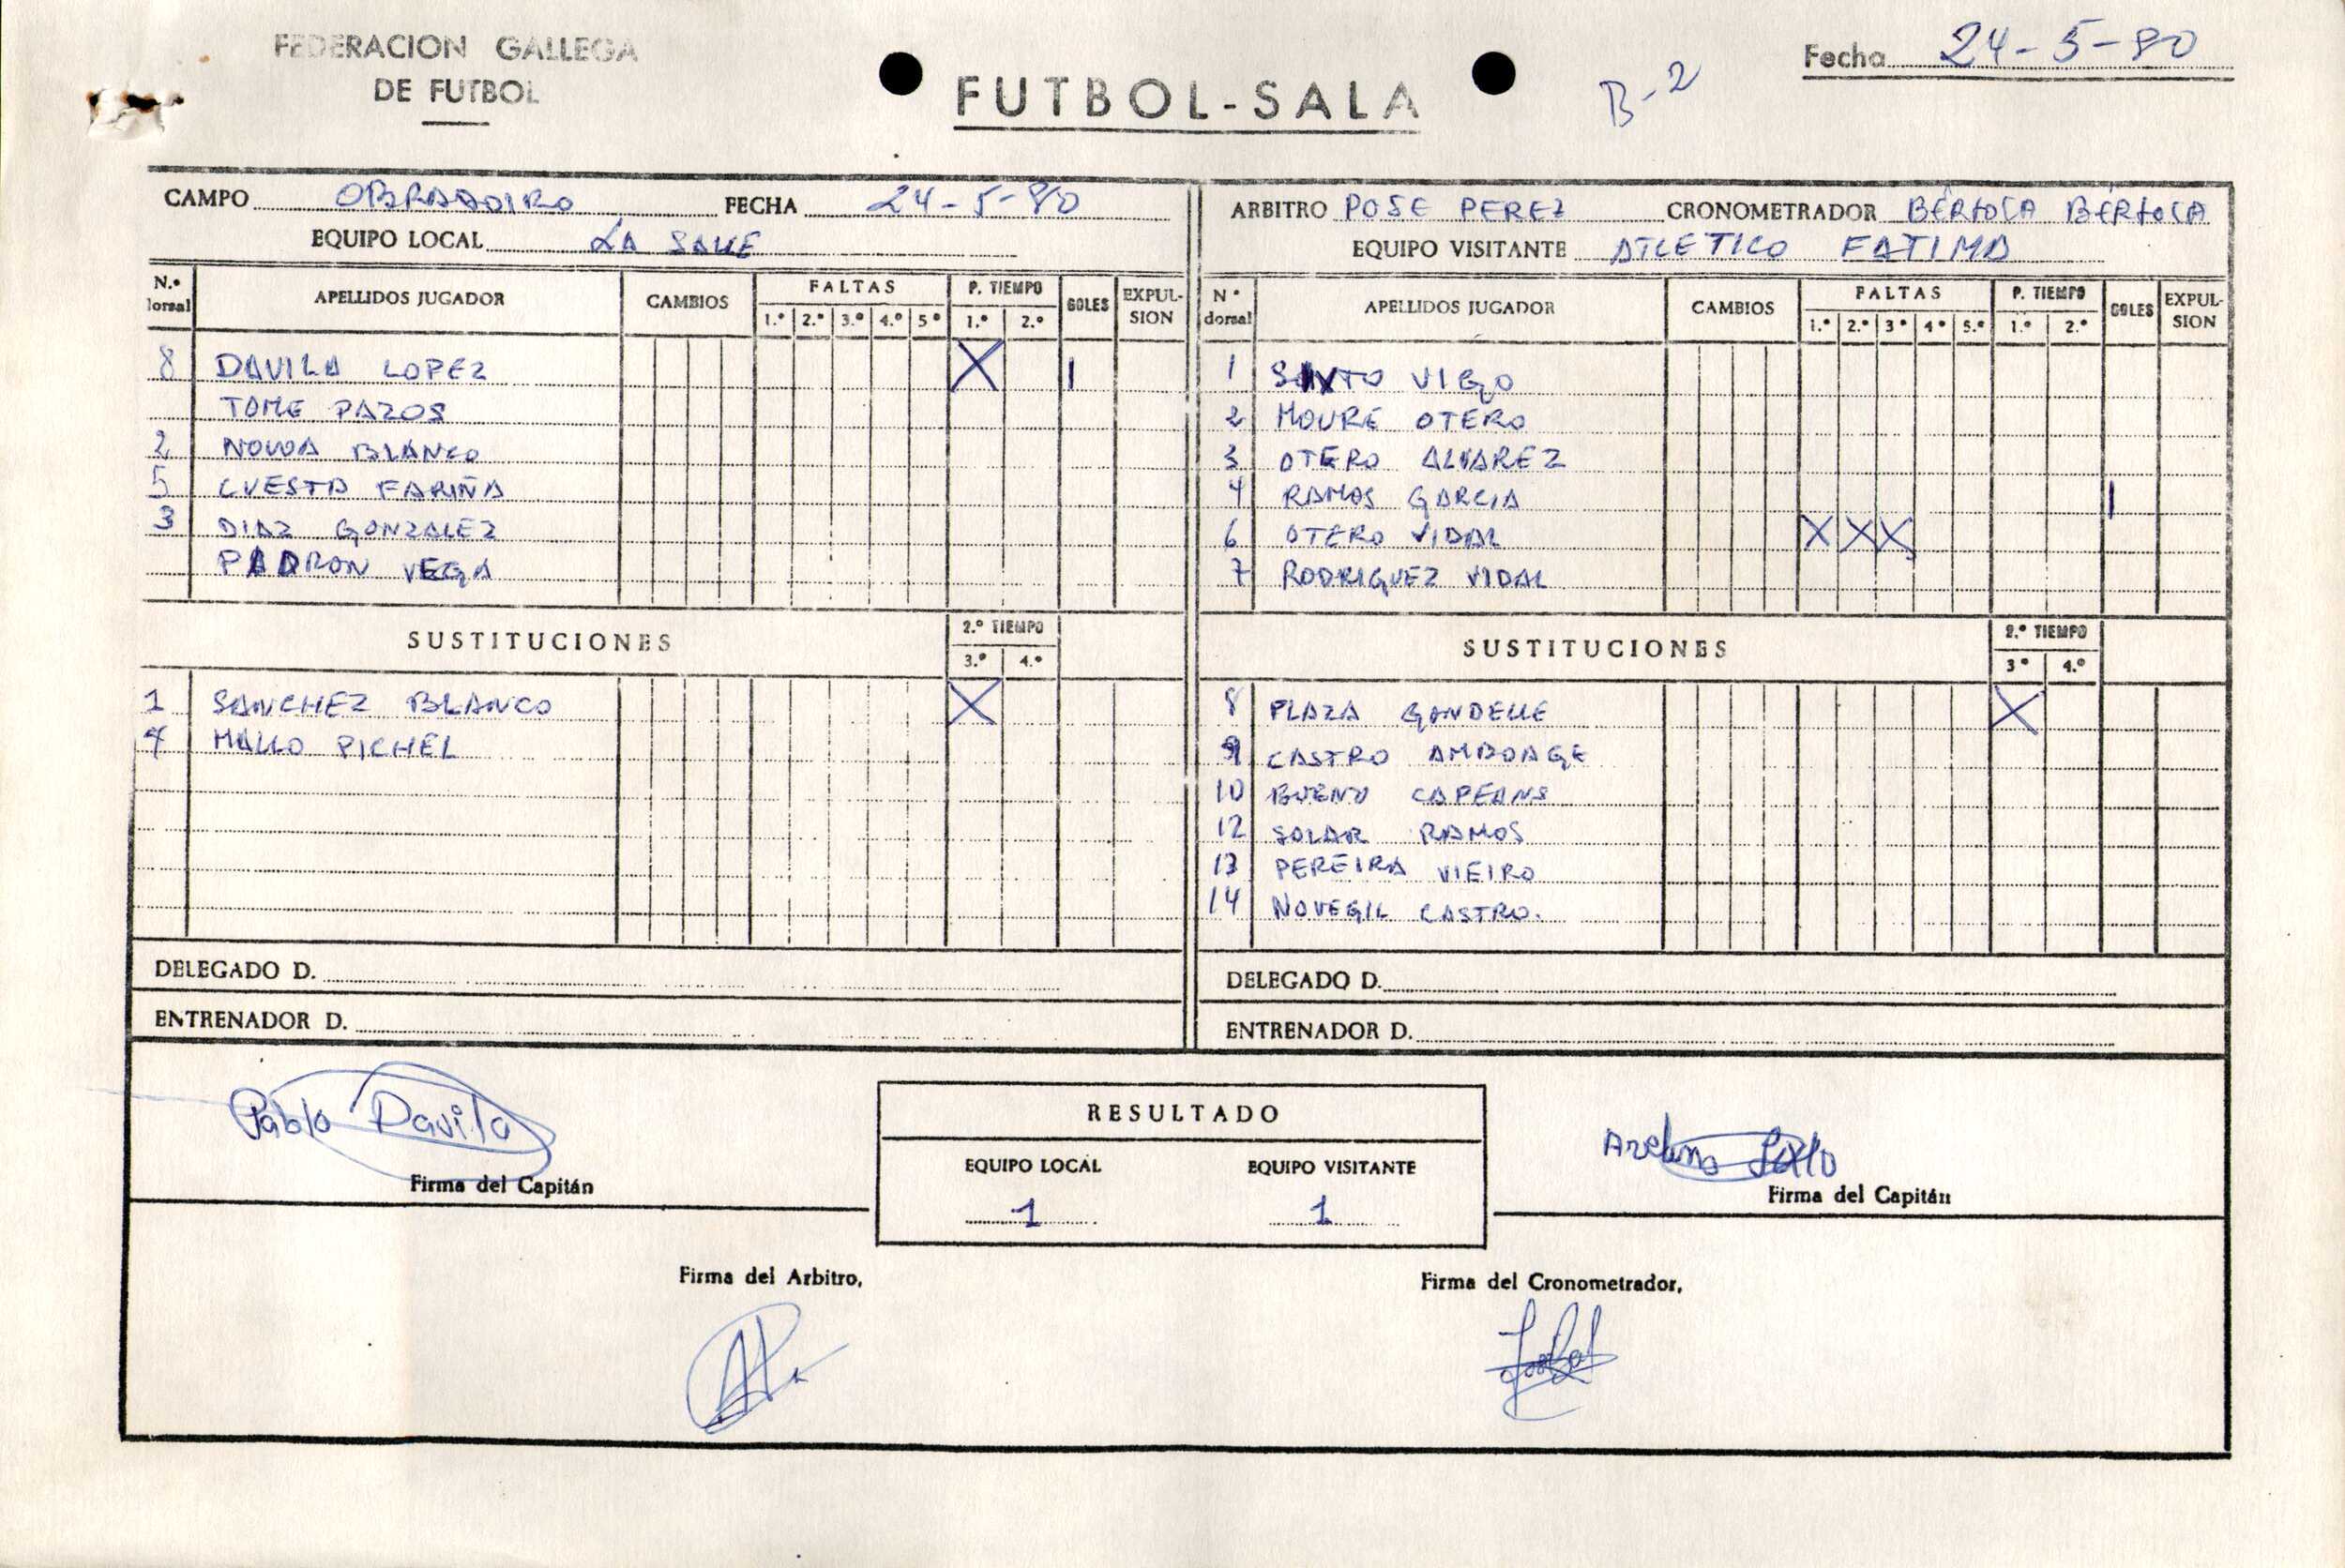 FEDERACION GALLEGA
DE FUTBOL
FUTBOL-SALA
B-2
Fecha 24-5-80
CAMPO OBRADOIRO FECHA 24-5-80
EQUIPO LOCAL LA SALLE
N.º dorsal APELLIDOS JUGADOR CAMBIOS FALTAS 1.º 2.º 3.º 4.º 5º P. TIEMPO 1.º 2.º GOLES EXPUL-SION
8 DAVILA LOPEZ X 1
TOME PAZOS
2 NOVOA BLANCO
5 CUESTA FARIÑA
3 DIAZ GONZALEZ
PADRON VEGA
SUSTITUCIONES 2.º TIEMPO 3.º 4.º
1 SANCHEZ BLANCO X
4 MALLO PICHEL
DELEGADO D.
ENTRENADOR D.
ARBITRO POSE PEREZ CRONOMETRADOR BERTOLA BERTOLA
EQUIPO VISITANTE ATLETICO FATIMA
Nº dorsal APELLIDOS JUGADOR CAMBIOS FALTAS 1.º 2.º 3º 4º 5.º P. TIEMPO 1.º 2.º GOLES EXPUL-SION
1 VIGO
2 MOURE OTERO
3 OTERO ALVAREZ
4 RAMOS GARCIA 1
6 OTERO VIDAL X X X
7 RODRIGUEZ VIDAL
SUSTITUCIONES 2.º TIEMPO 3º 4.º
8 PLAZA GONDELLE X
9 CASTRO AMBOAGE
10 BUENO CAPEANS
12 SOLAR RAMOS
13 PEREIRA VIEIRO
14 NOVEGIL CASTRO.
DELEGADO D.
ENTRENADOR D.
Pablo Davila
Firma del Capitán
RESULTADO
EQUIPO LOCAL EQUIPO VISITANTE
1 1
Firma del Capitán
Firma del Arbitro,
Firma del Cronometrador,